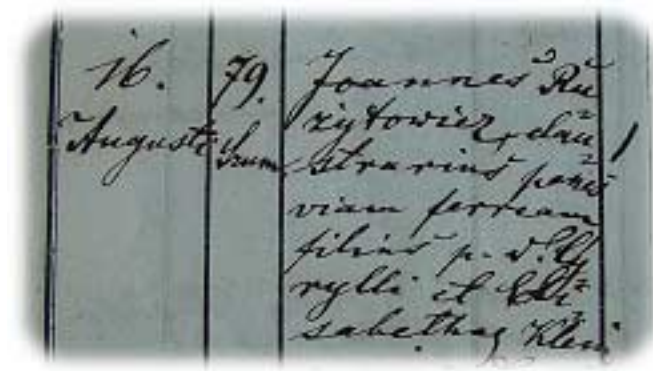 16. Augusti
79. Szum
Joannes Ru
żytowicz, clau
strarius penes
viam ferream
filius p. d. Cy
rylli et Eli
sabethae Klein